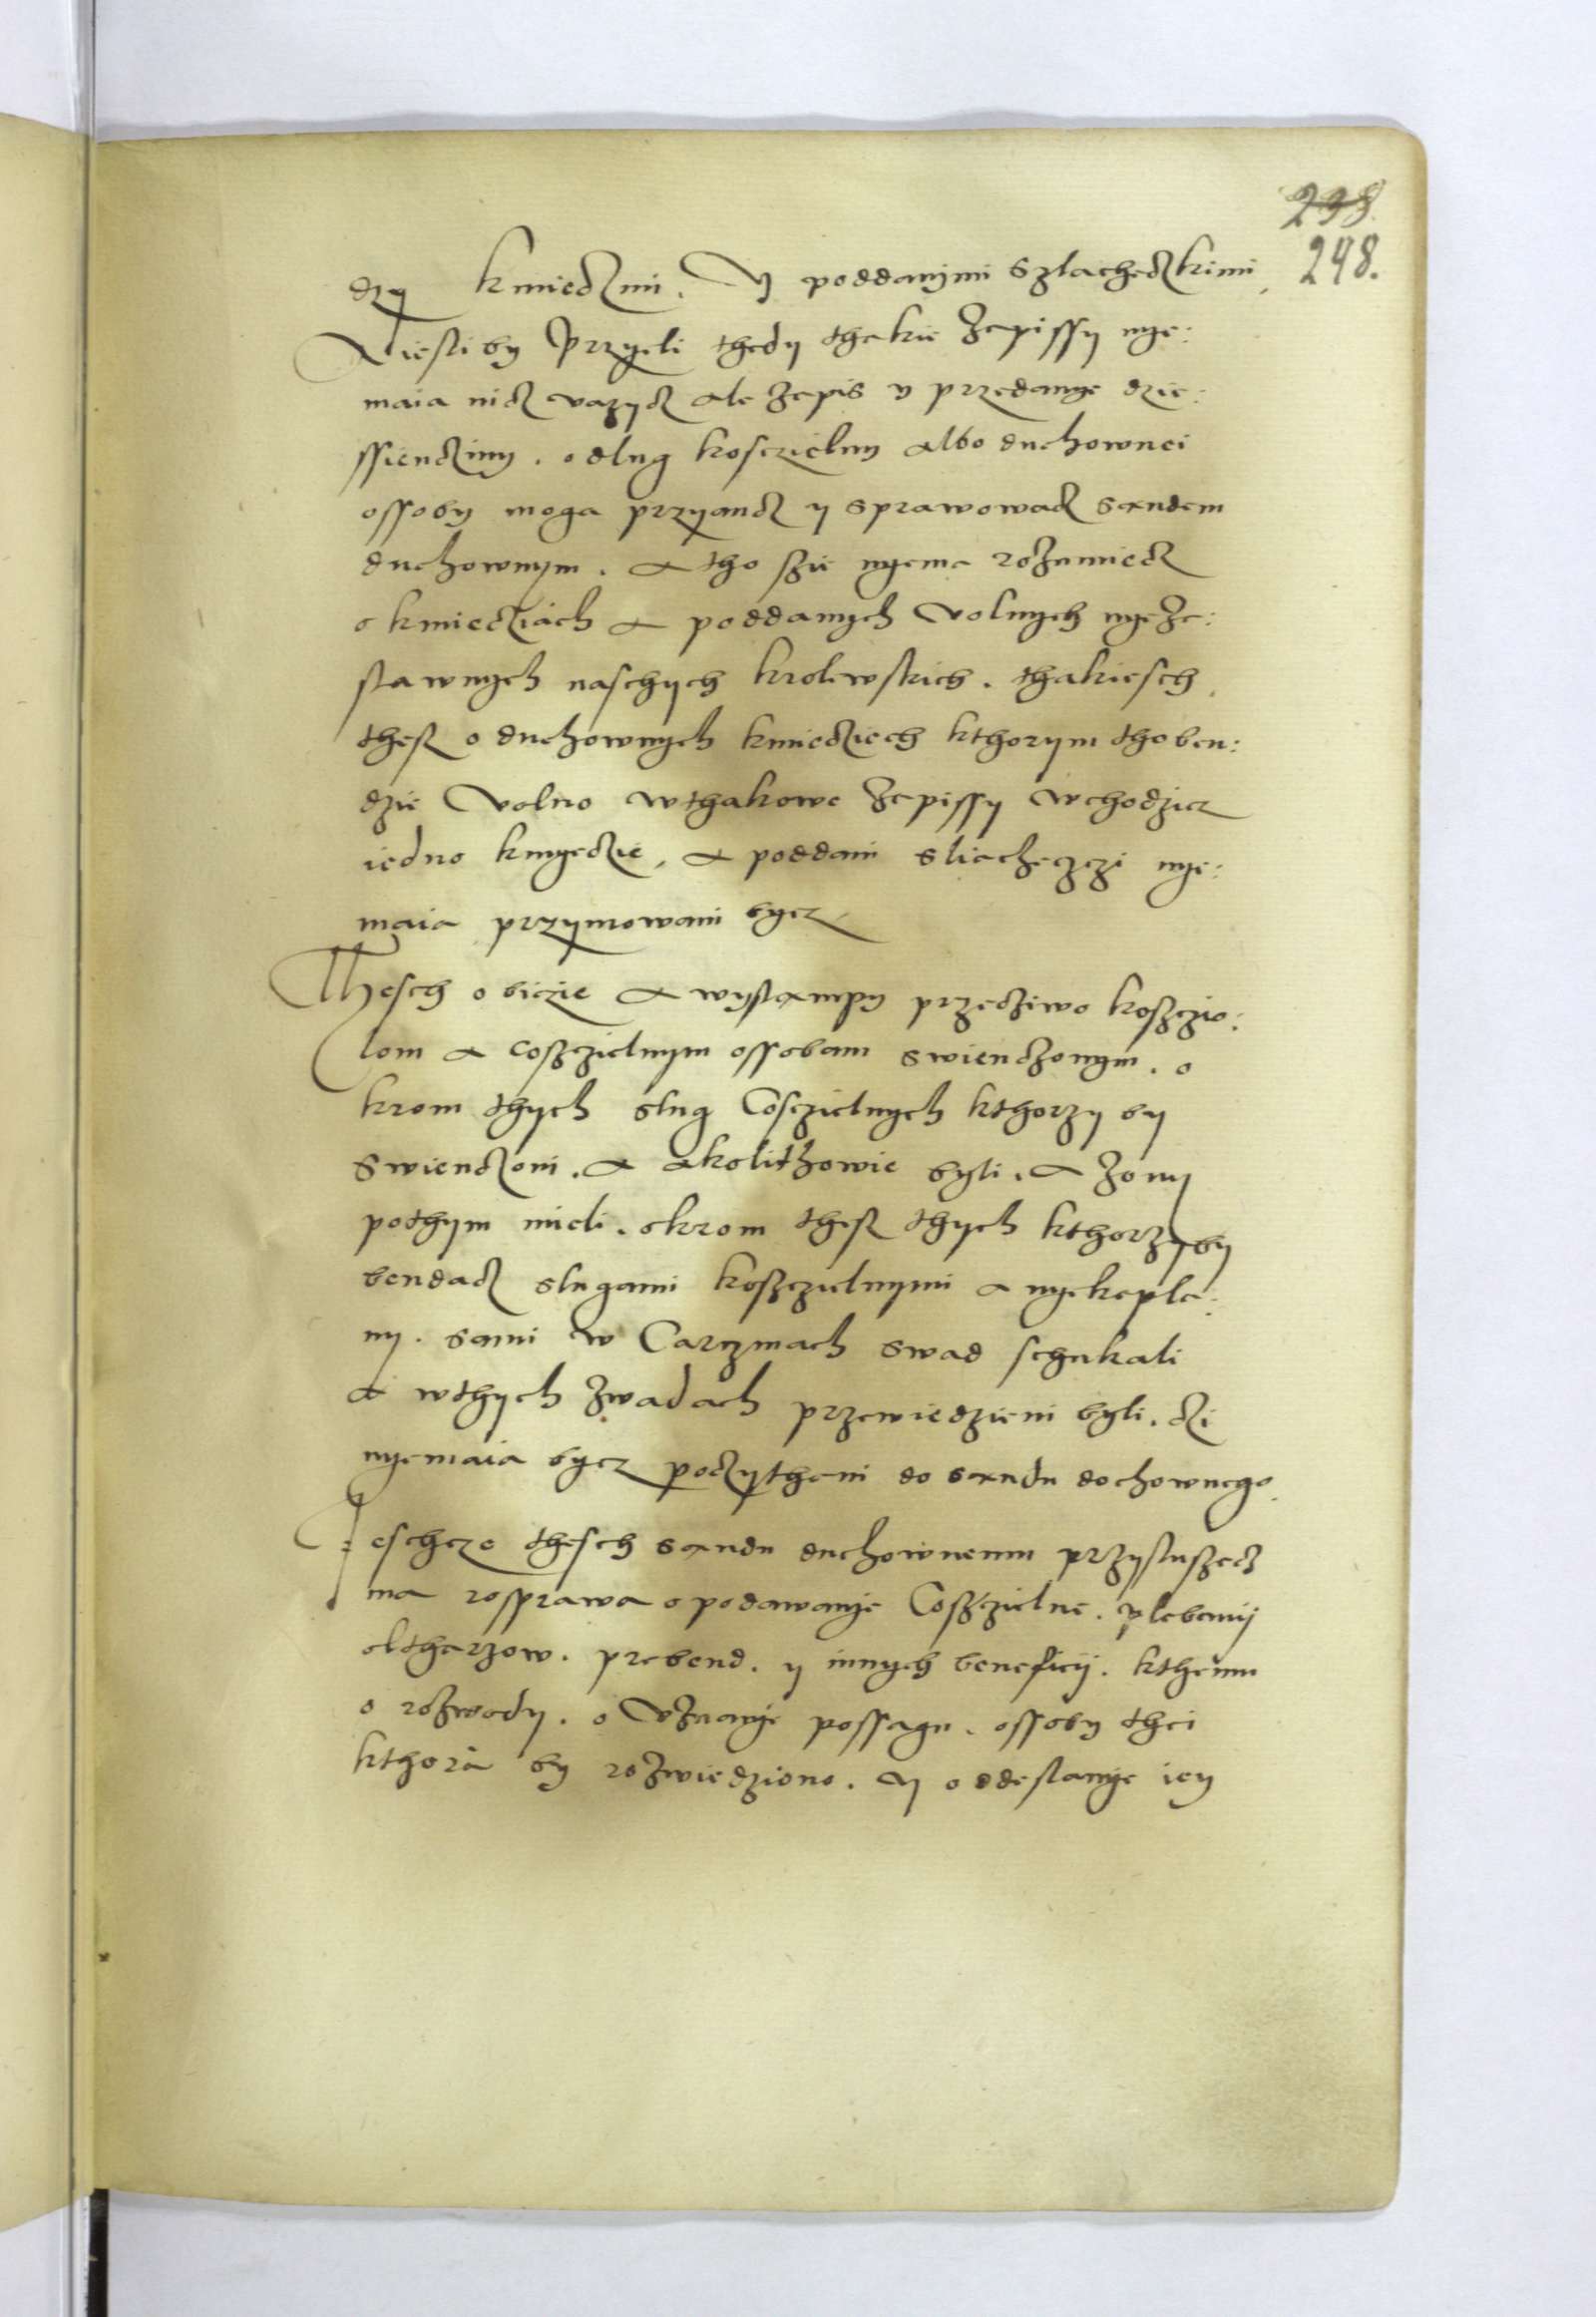 238.
248.
dzy kmieczmi. Y poddanymi szlacheczkimi,
A iesliby Przyęli thedy thakie zapissy nye:
maia nicz vazycz ale zapis y przedanye dzie:
ssiencziny. o dlug kosczielny albo duchownei
ossoby moga przyiancz y sprawowacz sandem
duchownym. A tho szie nyema rozumiecz
o kmiecziach a poddanych volnych nyeza:
stawnych naschych krolewskich. thakiesch,
thesz o duchownych kmiecziech kthorym thoben:
dzie Volno wthakowe zapissy wchodzicz
iedno kmyeczie, a poddani sliacheczczi nye:
maia przymowani bycz
Thesch o bicie a wystampy przecziwo koszczio:
lom a coszczielnym ossobam swienczonym. o
krom thych slug Cosczielnych kthorzy by
swienczoni. a akolithowie byli. a zony
pothym mieli. okrom thesz thych kthorzyby
bendacz slugami koszczielnymi a nyekapla:
ny. sami w Carczmach swad schukali
a wthych zwadach przewiedzieni byli. czi
nyemaia bycz poczythani do sandu dochownego.
Jeschcze thesch sandu duchownemu przysluszecz
ma rosprawa o podawanye Coszczielne. plebanij
oltharzow. prebend. y innych beneficij. kthemu
o rozwody. o Vznanye possagu. ossoby thei
kthora by rozwiedziono. y oddestanye iey